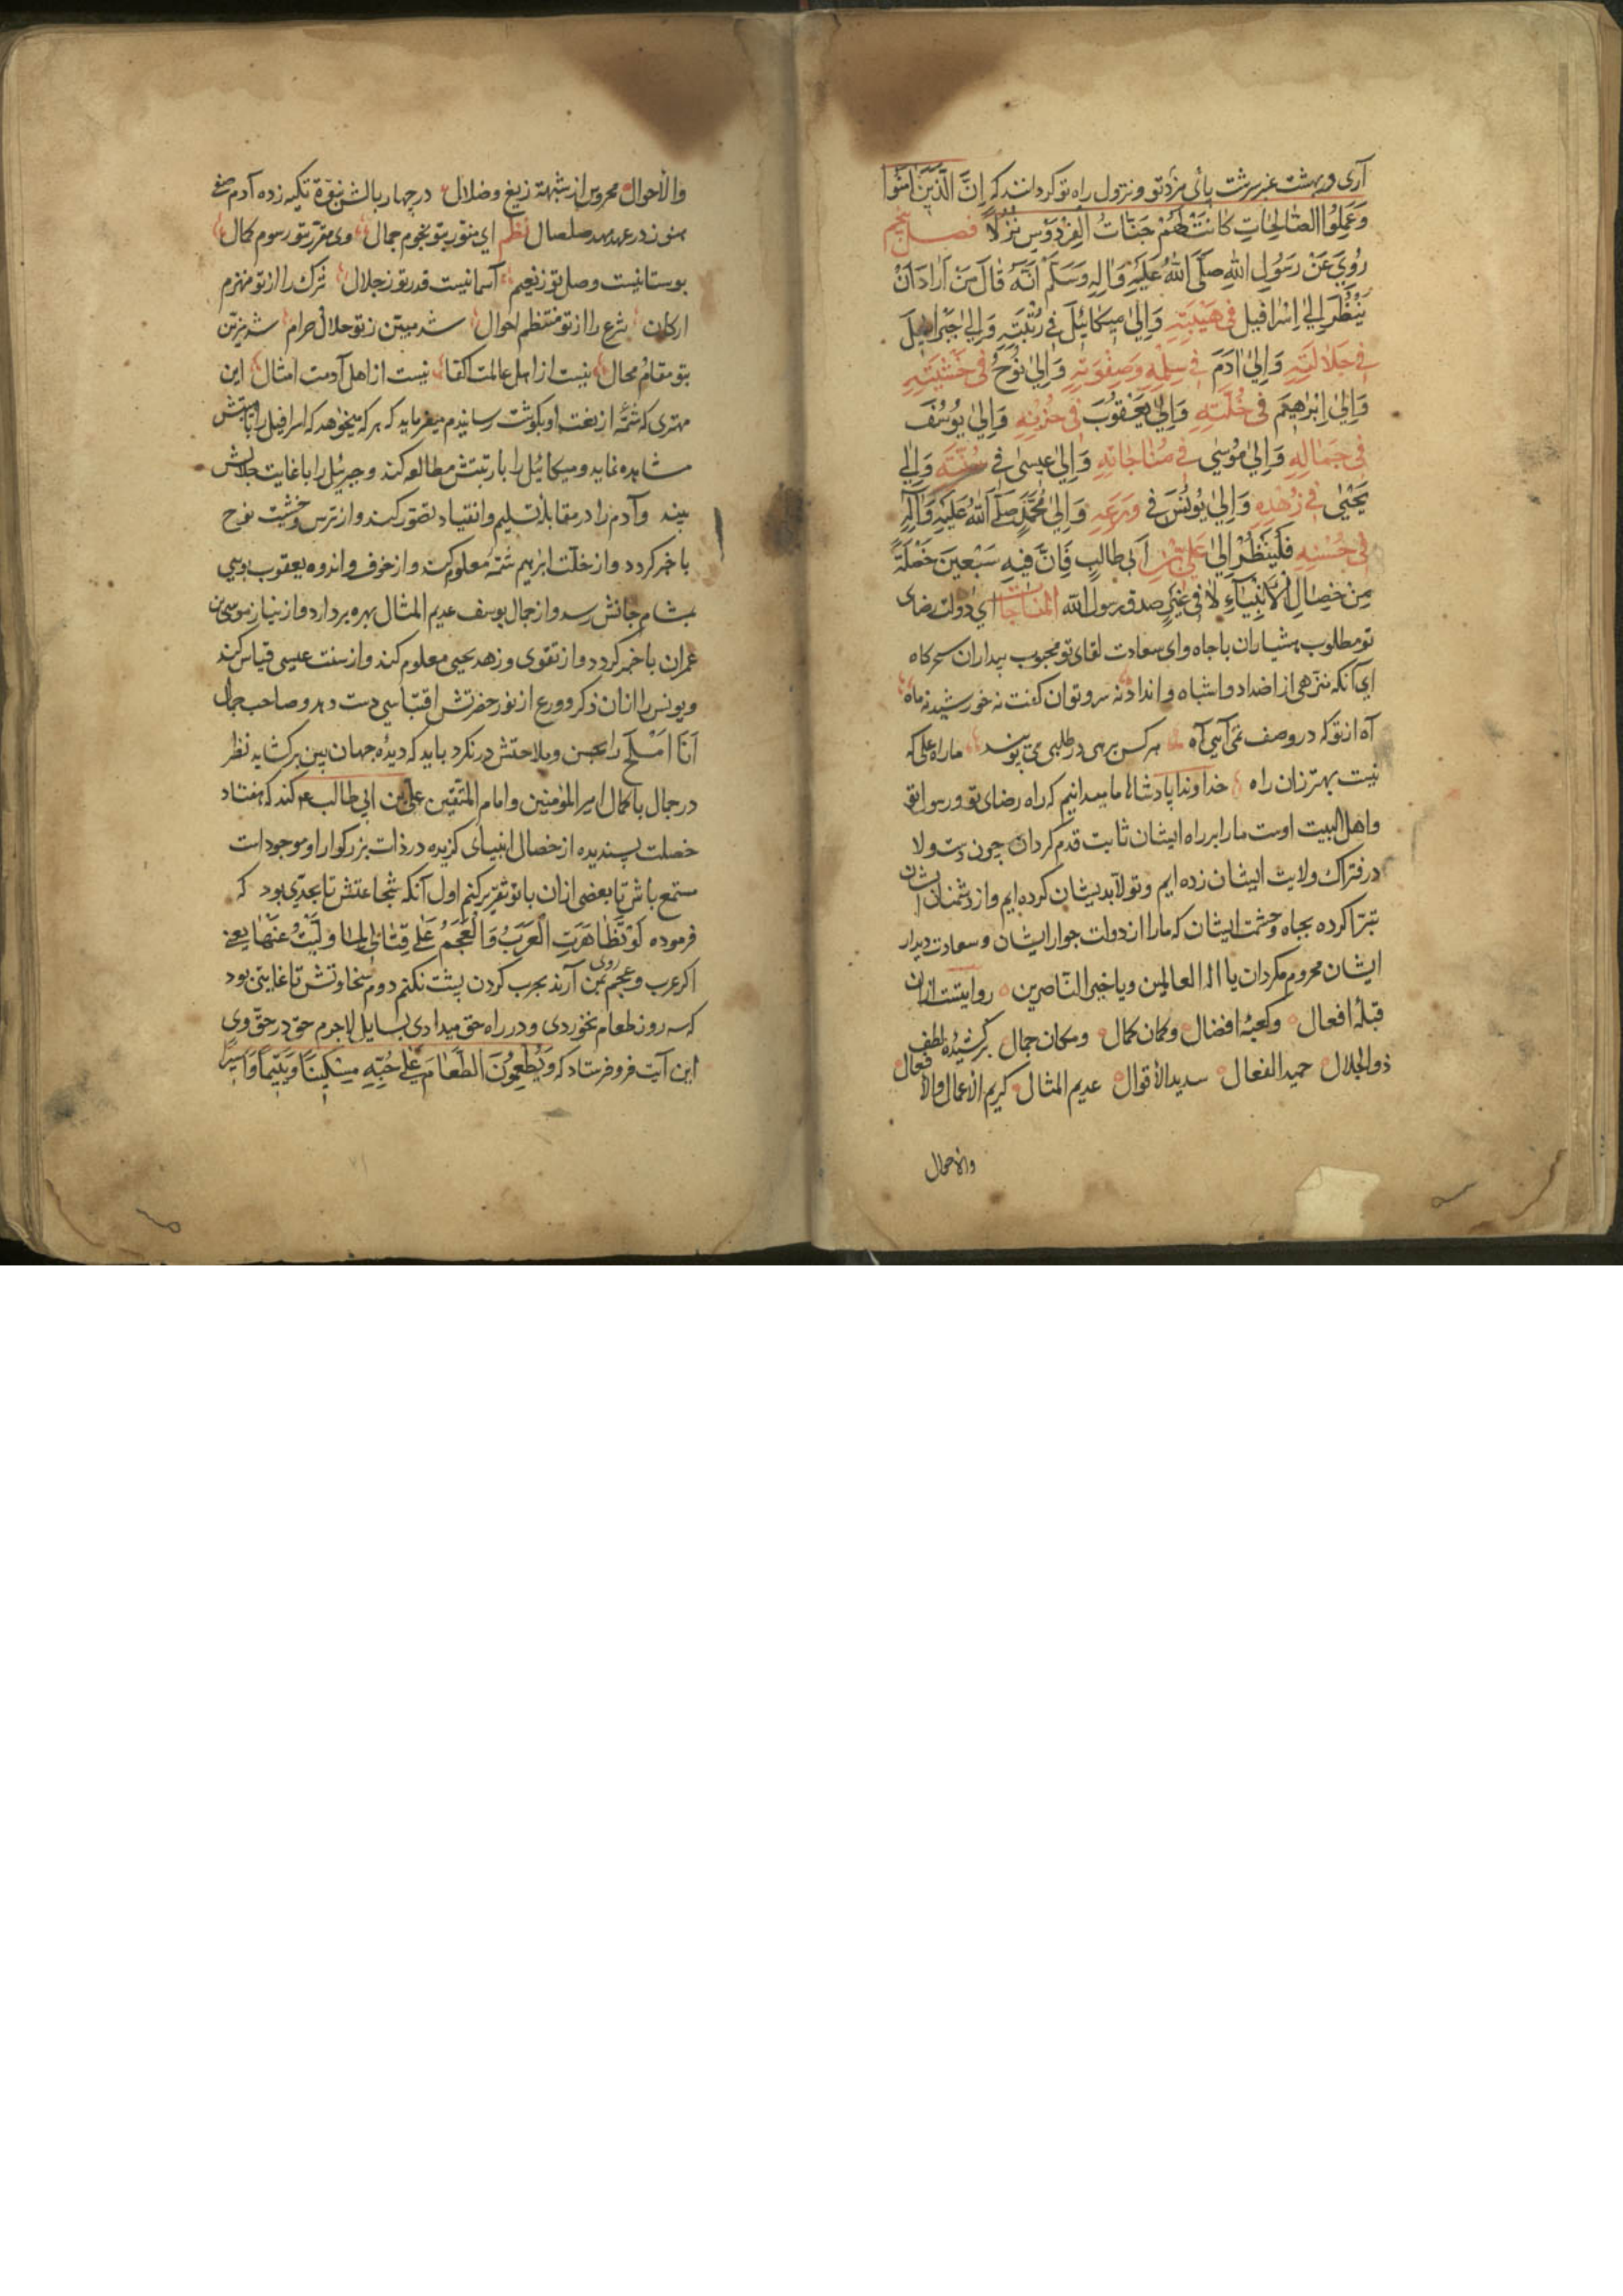 آری و بهشت عنبر سرشت پای مزد تو و نزول راه تو کردانند که اِنَّ الَّذِینَ اٰمَنُوا
وَعَمِلُوا الصَّالِحَاتِ کَانَتْ لَهُمْ جَنَّاتُ الْفِرْدَوْسِ نُزُلًا فصل پنجم
رُوِیَ عَنْ رَسُولِ اللّٰهِ صَلَّی اللّٰهُ عَلَیْهِ وَاٰلِهِ وَسَلَّمَ اَنَّهُ قٰالَ مَنْ اَرٰادَ اَنْ
یَنْظُرَ اِلیٰ اِسْرٰافیلَ فی هَیْبَتِهِ وَاِلیٰ میکائیلَ فی رُتْبَتِهِ وَاِلیٰ جَبْرٰائیلَ
فی جَلٰالَتِهِ وَاِلیٰ اٰدَمَ فی سِلْمِهِ وَصِفْوَتِهِ وَاِلیٰ نُوحٍ فی خَشْیَتِهِ
وَاِلیٰ اِبْرٰهیمَ فی خُلَّتِهِ وَاِلیٰ یَعْقُوبَ فی حُزْنِهِ وَاِلیٰ یُوسُفَ
فی جَمٰالِهِ وَاِلیٰ مُوسیٰ فی مُنٰاجٰاتِهِ وَاِلیٰ عیسیٰ فی سُنَّتِهِ وَاِلیٰ
یَحْییٰ فی زُهْدِهِ وَاِلیٰ یُونُسَ فی وَرَعِهِ وَاِلیٰ مُحَمَّدٍ صَلَّی اللّٰهُ عَلَیْهِ وَاٰلِهِ
فی حُسْنِهِ فَلْیَنْظُرْ اِلیٰ عَلِیِّ بْنِ اَبی طٰالِبٍ فَاِنَّ فیهِ سَبْعینَ خَصْلَةً
مِنْ خِصٰالِ الْاَنْبِیٰآءِ لٰا فی غَیْرِهِ صدق رسول الله المناجات ای دولت رضای
تو مطلوب هشیاران باجاه وای سعادت لقای تو محبوب بیداران سحرکاه
ای آنکه منزهی از اضداد و اشباه و انداد نه سر و توان کفت نه خورشید نه ماه
آه از تو که در وصف نمی آیی آه هر کس برهی در طلبی می پویند ما راه علی که
نیست بهتر زان راه خداوندا پادشاها ما میدانیم که راه رضای تو و رسول تو
و اهل البیت اوست ما را بر راه ایشان ثابت قدم کردان چون دست ولا
در فتراک ولایت ایشان زده ایم و تولا بدیشان کرده ایم و از دشمنان ایشان
تبرّا کرده بجاه و حشمت ایشان که ما را از دولت جوار ایشان و سعادت دیدار
ایشان محروم مکردان یا اله العالمین و یا خیر الناصرین روایتست از ان
قبلهٔ افعال و کعبهٔ افضال و کان کمال و مکان جمال برکشیدهٔ لطف
ذو الجلال حمید الفعال سدید الأقوال عدیم المثال کریم الأعمال والأفعال
والاحوال
والأحوال محروس از شبهة زیغ و ضلال در چهار بالش نبوة تکیه زده آدم صفی
هنوز در عهد مهد صلصال نظم ای منوّر بتو نجوم جمال وی مقرّر بتو رسوم کمال
بوستانیست وصل تو ز نعیم آسمانیست قدر تو ز جلال شرک را از تو منهزم
ارکان شرع را از تو منتظم احوال شد مبیّن ز تو حلال و حرام شد مزیّن
بتو مقام و محال نیست از اهل عالمت اکفا نیست از اهل آدمت امثال این
مهتری که شمّهٔ از نعت او بکوشت رسانیدم میفرماید که هر که میخواهد که اسرافیل را با هیبتش
مشاهده نماید و میکائیل را با رتبتش مطالعه کند و جبرئیل را با غایت جلالتش
بیند و آدم را در مقابلهٔ تسلیم و انقیاد تصوّر کند و از ترس و خشیت نوح
باخبر کردد و از خلّت ابرهیم شمّهٔ معلوم کند و از خوف و اندوه یعقوب بویی
بمشام جانش رسد و از جمال یوسف عدیم المثال بهره بردارد و از نیاز موسی بن
عمران باخبر کردد و از تقوی و زهد یحیی معلوم کند و از سنت عیسی قیاس کند
و یونس را از ان ذکر و ورع از نور حضرتش اقتباسی دست دهد و صاحب جمال
اَنَا اَمْلَحُ را بحسن و ملاحتش درنکرد باید که دیدهٔ جهان بین برکشاید نظر
در جمال باکمال امیر المؤمنین و امام المتقین علی بن ابی طالب ع کند که هفتاد
خصلت پسندیده از خصال انبیای کزیده در ذات بزرکوار او موجود است
مستمع باش تا بعضی از ان با تو تقریر کنیم اول آنکه شجاعتش تا بحدّی بود که
فرموده لَوْ تَظٰاهَرَتِ الْعَرَبُ وَالْعَجَمُ عَلیٰ قِتٰالی لَمٰا وَلَّیْتُ عَنْهٰا یعنی
اکر عرب و عجم روی بمن آرند بحرب کردن پشت نکنم دوم سخاوتش تا غایتی بود
که سه روز طعام نخوردی و در راه حق میدادی بسایل لاجرم حق در حقّ وی
این آیت فرو فرستاد که وَیُطْعِمُونَ الطَّعٰامَ عَلیٰ حُبِّهِ مِسْکینًا وَیَتیمًا وَاَسیرًا